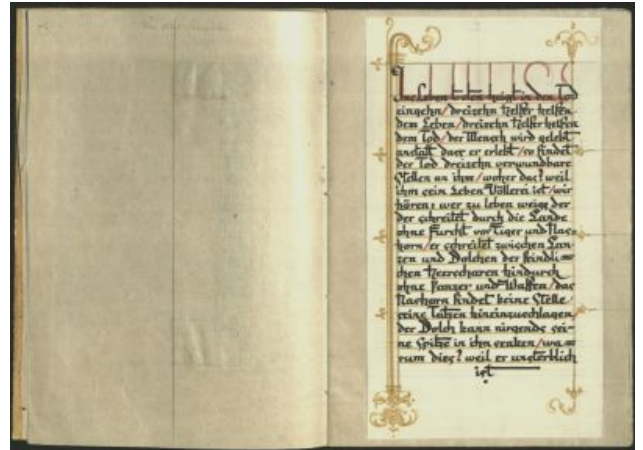 Ins Leben treten heißt in den Tod
eingehn/dreizehn Helfer helfen
dem Leben/dreizehn Helfer helfen
dem Tod/der Mensch wird gelebt
anstatt dass er erlebt/so findet
der Tod dreizehn verwundbare
Stellen an ihm/woher das? weil
ihm sein Leben Völlerei ist/wir
hören: wer zu leben weiss der
der schreitet durch die Lande
ohne Furcht vor Tiger und Nas=
horn/er schreitet zwischen Lan=
zen und Dolchen der feindli=
chen Heerscharen hindurch
ohne Panzer und Waffen/das
Nashorn findet keine Stelle/
seine Tatzen hineinzuschlagen/
der Dolch kann nirgends sei=
ne Spitze in ihn senken/wa=
rum dies? weil er unsterblich
ist